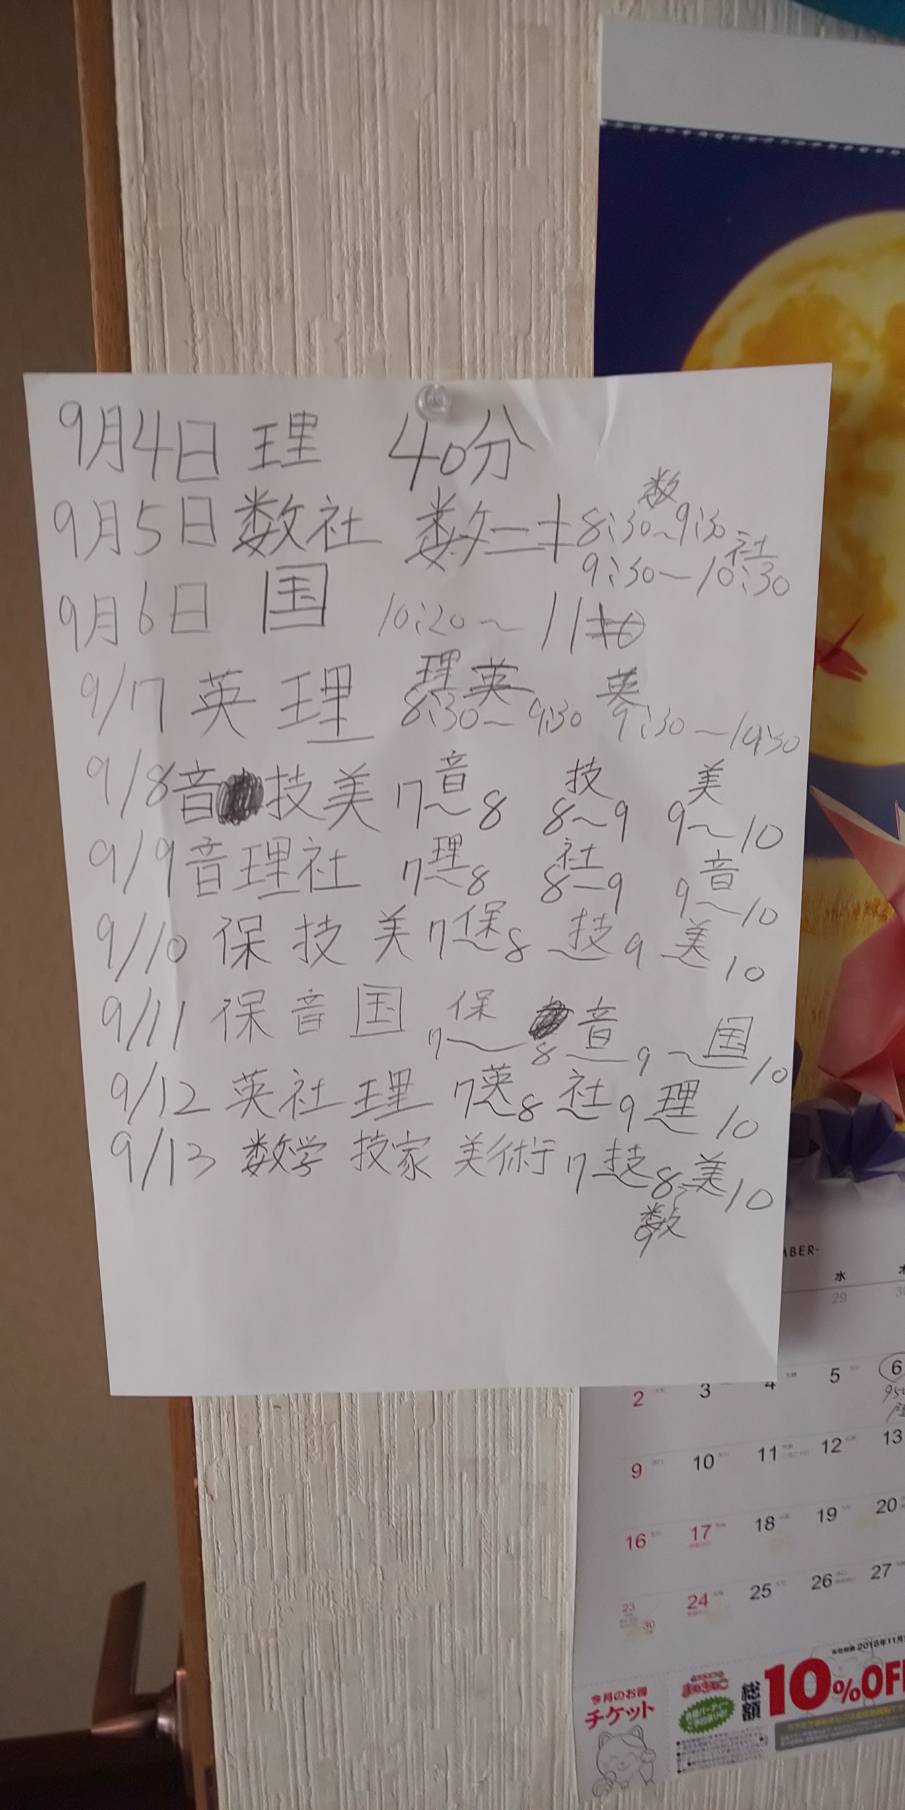 9月4日 理 40分
9月5日 数社 8:30~9:30 数
9:30~10:30 社
9月6日 国 10:20~11
9/7 英 理 理 英 英
8:30~9:30 9:30~10:30
9/8 音 技美 7音~8 技8~9 美9~10
9/9 音理社 7理~8 社8~9 音9~10
9/10 保 技 美 7保~8 技~9 美~10
9/11 保音国 保7~8 音~9 ~国10
9/12 英社理 7英~8 社~9 理~10
9/13 数学 技家 美術 7技~8 美~10
数
9
BER-
水 木
29
2 3 4 5 6
9 10 11 12 13
16 17 18 19 20
23 24 25 26 27
30
今月のお得
チケット
総額10%OFF
2018年11月